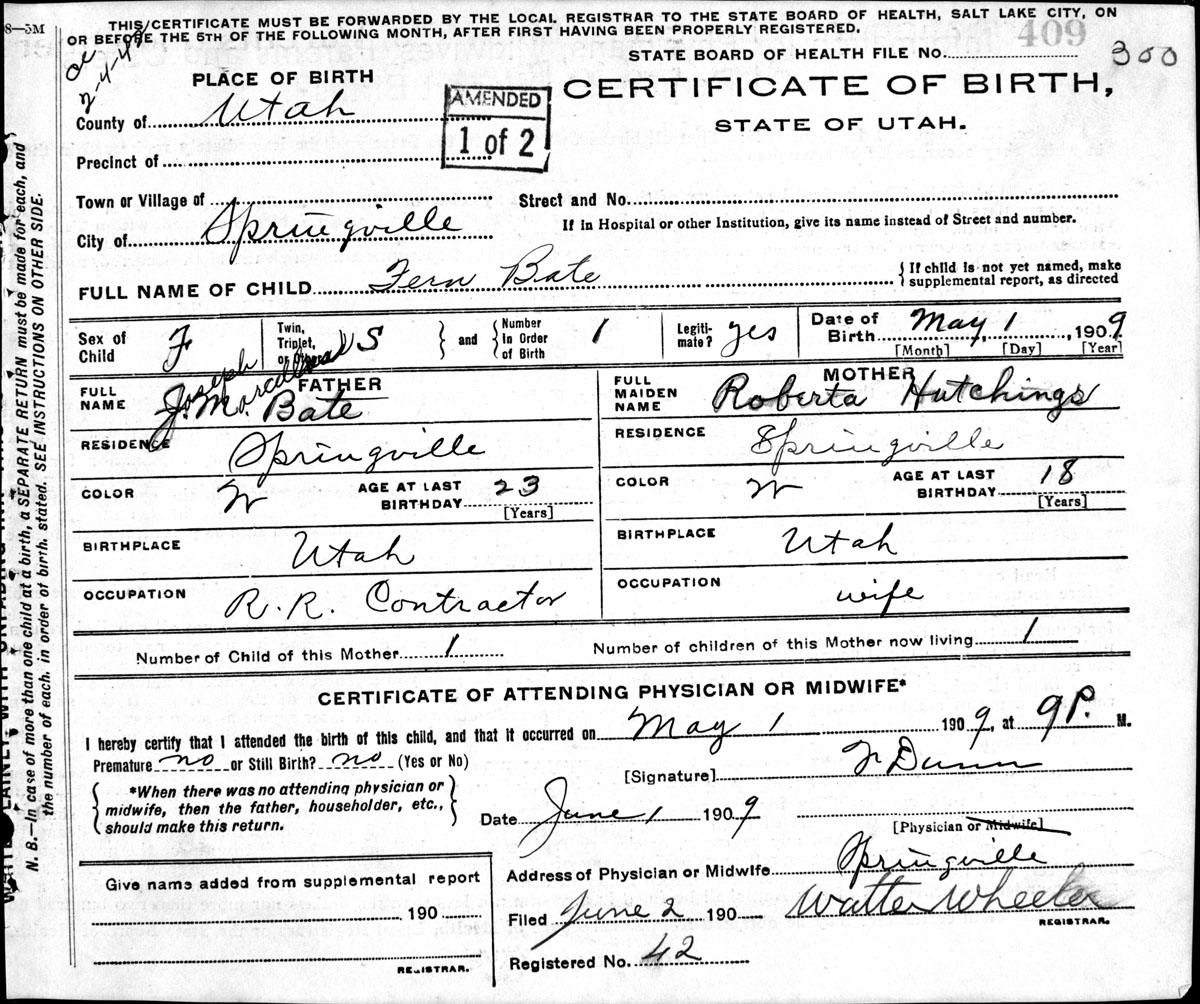 8—5M
THIS CERTIFICATE MUST BE FORWARDED BY THE LOCAL REGISTRAR TO THE STATE BOARD OF HEALTH, SALT LAKE CITY, ON
OR BEFORE THE 5TH OF THE FOLLOWING MONTH, AFTER FIRST HAVING BEEN PROPERLY REGISTERED.
409
2-4-4
STATE BOARD OF HEALTH FILE NO. 300
PLACE OF BIRTH
CERTIFICATE OF BIRTH,
STATE OF UTAH.
County of Utah
AMENDED
1 of 2
Precinct of
Town or Village of
Street and No.
City of Springville
If in Hospital or other Institution, give its name instead of Street and number.
FULL NAME OF CHILD Fern Bate
{ If child is not yet named, make
supplemental report, as directed
Sex of Child F
Twin, Triplet, or S
and
Number In Order of Birth 1
Legitimate? yes
Date of Birth May 1, 1909
[Month] [Day] [Year]
FATHER
FULL NAME J. M. Bate
Joseph
MOTHER
FULL MAIDEN NAME Roberta Hutchings
RESIDENCE Springville
RESIDENCE Springville
COLOR W
AGE AT LAST BIRTHDAY 23
[Years]
COLOR W
AGE AT LAST BIRTHDAY 18
[Years]
BIRTHPLACE Utah
BIRTHPLACE Utah
OCCUPATION R.R. Contractor
OCCUPATION wife
Number of Child of this Mother 1
Number of children of this Mother now living 1
CERTIFICATE OF ATTENDING PHYSICIAN OR MIDWIFE*
I hereby certify that I attended the birth of this child, and that it occurred on May 1 1909, at 9 P. M.
Premature no or Still Birth? no (Yes or No)
[Signature] Dunn
{ *When there was no attending physician or
midwife, then the father, householder, etc.,
should make this return. }
Date June 1 1909
[Physician or Midwife]
Address of Physician or Midwife Springville
Give name added from supplemental report
190
REGISTRAR.
Filed June 2 190
Walter Wheeler
REGISTRAR.
Registered No. 42
N. B.—In case of more than one child at a birth, a SEPARATE RETURN must be made for each, and
the number of each, in order of birth, stated. SEE INSTRUCTIONS ON OTHER SIDE.